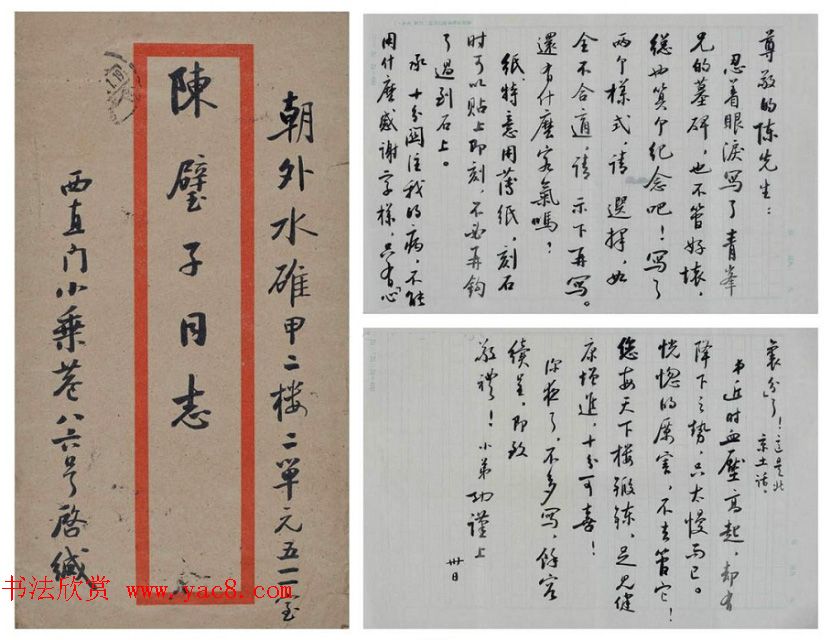 朝外水碓甲二楼二単元五室
陳璧子同志
西直门小乘巷八六号啓緘
尊敬的陈先生：
忍着眼淚写了青峯
兄的墓碑，也不管好壞，
総也算个纪念吧！写了
两个樣式，请選擇，如
全不合適，请示下再写。
還有什麽客氣嗎？
紙，特意用薄紙，刻石
时可以贴上即刻，不必再鈎
了過到石上。
承十分関注我的病，不能
用什麽感谢字樣，只有“心
裏边”了！这是北
京土话，
弟近时血壓高起，却有
降下之势，只太慢而已。
恍惚的厲害，不去管它！
您每天下楼鍛鍊，足见健
康增進，十分可喜！
深夜了，不多写，餘容
續呈，即致
敬禮！小弟功謹上
卅日
书法欣赏 www.yac8.com